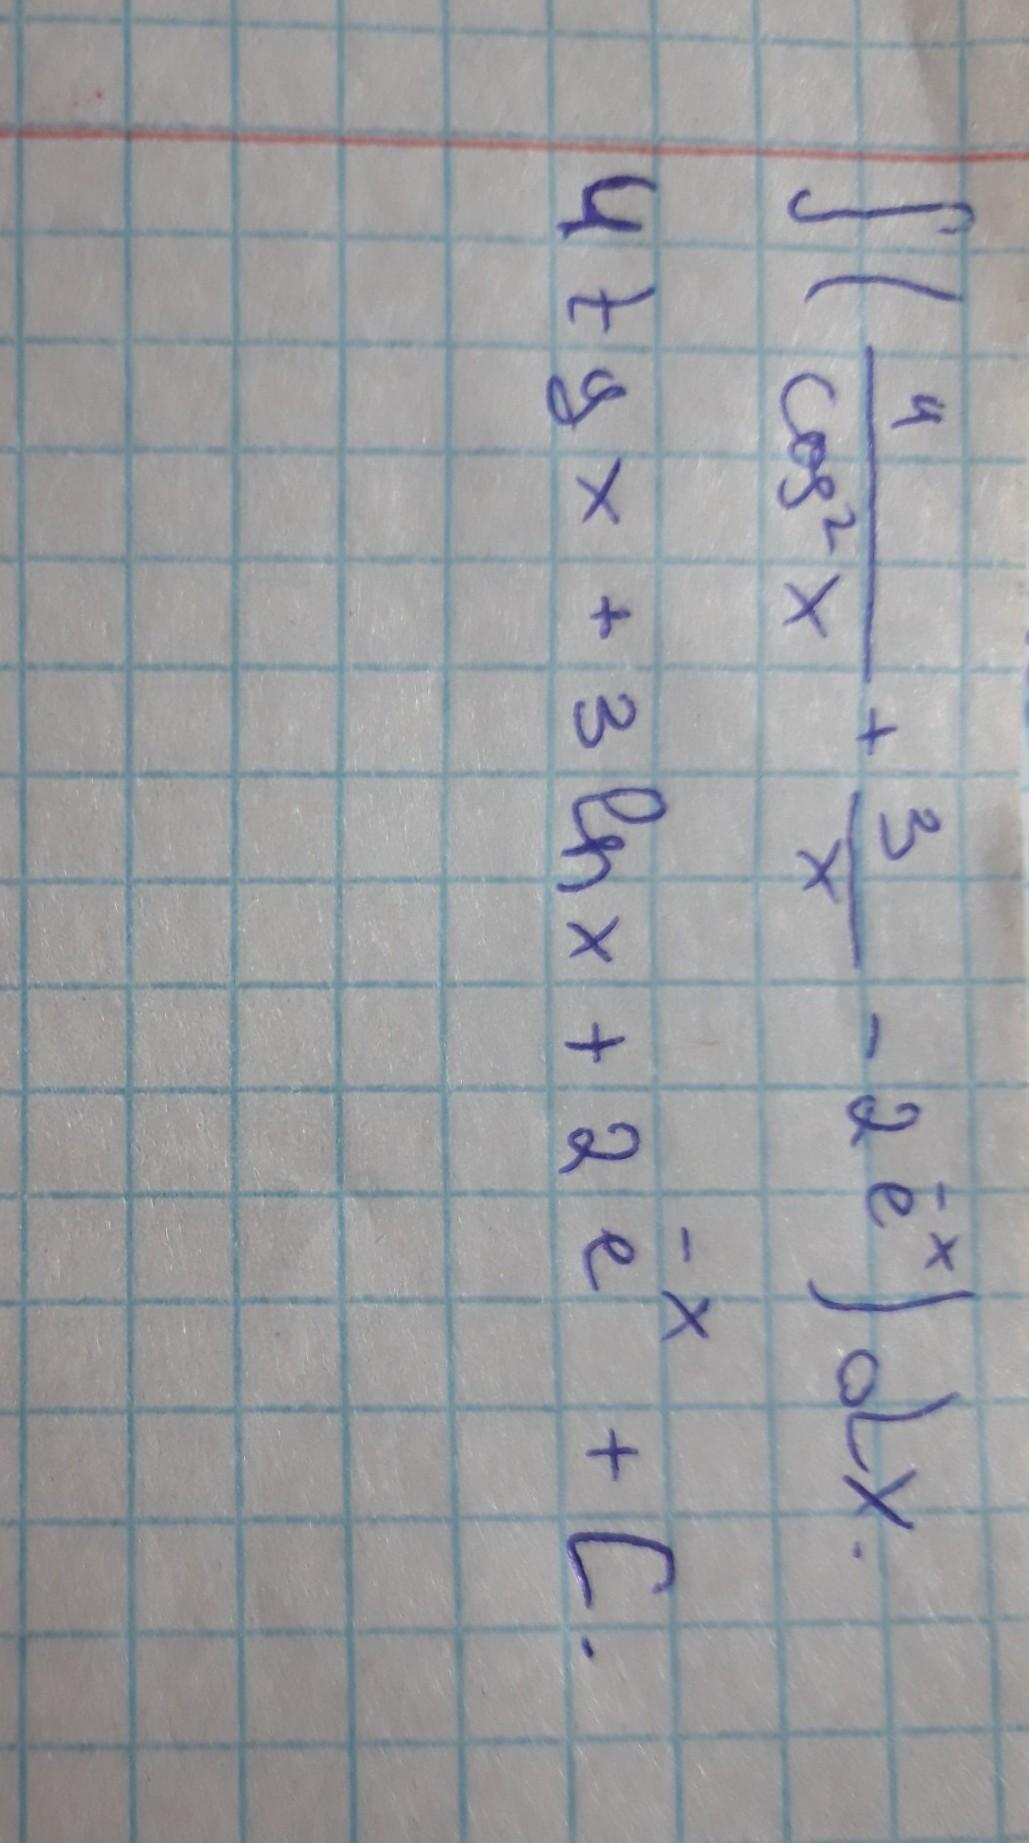 ∫(4/cos²x + 3/x - 2e⁻ˣ)dx.
4tgx + 3lnx + 2e⁻ˣ + C.